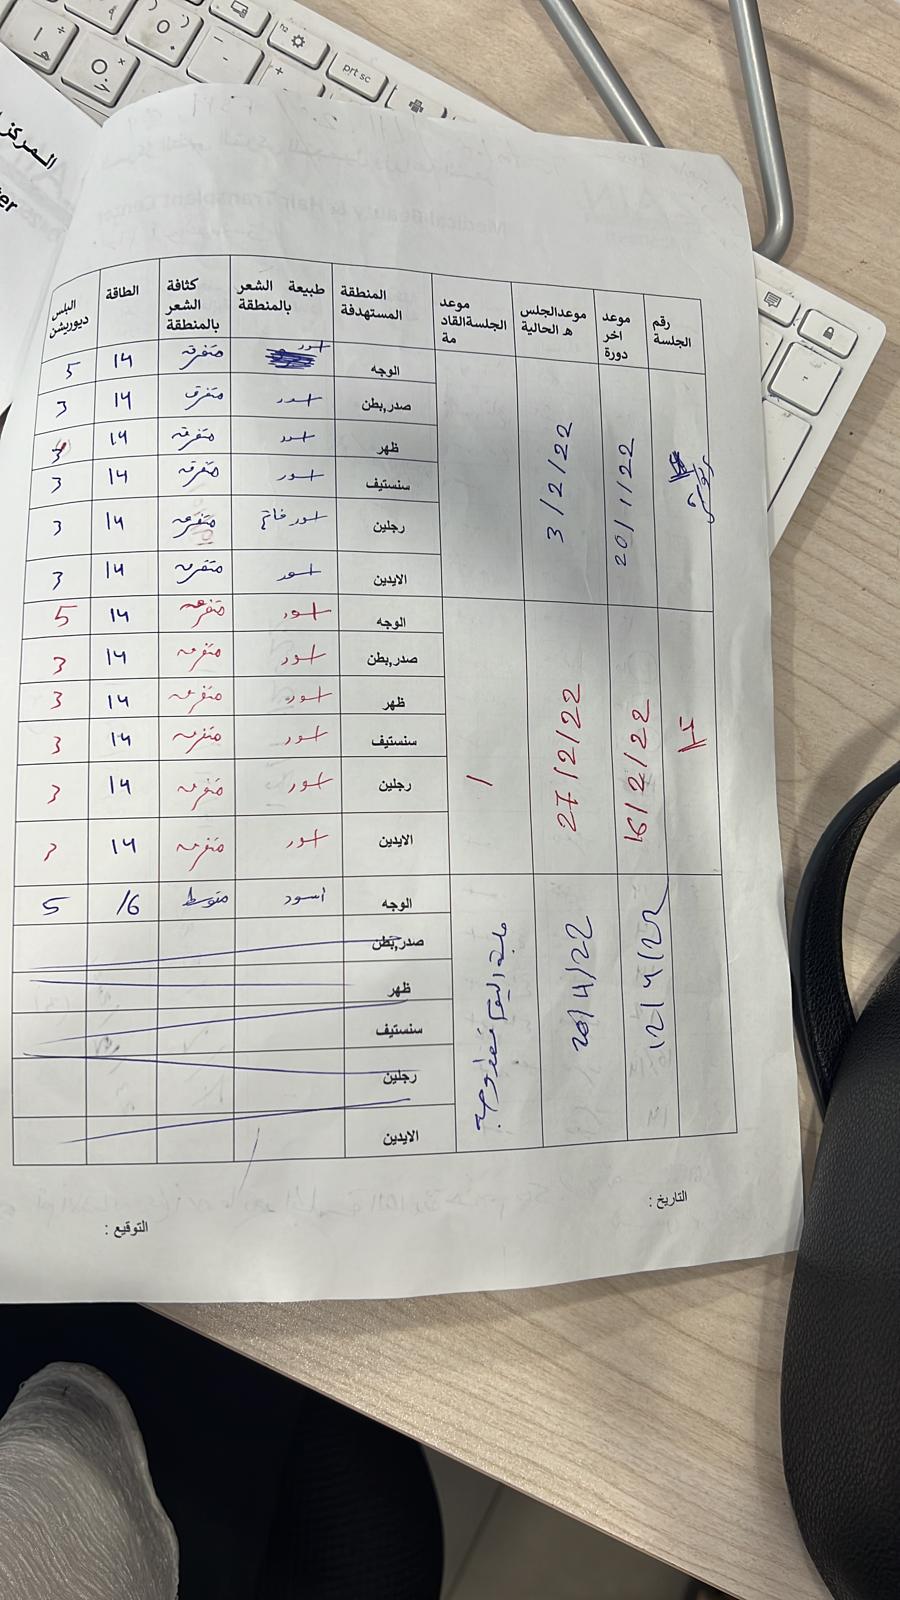 prt sc
المركز
رقم الجلسة | موعد اخر دورة | موعدالجلسة الحالية | موعد الجلسةالقادمة | المنطقة المستهدفة | طبيعة الشعر بالمنطقة | كثافة الشعر بالمنطقة | الطاقة | البلس ديوريشن
رتوش | 20/1/22 | 3/2/22
الوجه | اسود | متفرقه | 14 | 5
صدر,بطن | اسود | متفرقه | 14 | 3
ظهر | اسود | متفرقه | 14 | 3
سنستيف | اسود | متفرقه | 14 | 3
رجلين | اسود فاتح | متفرقه | 14 | 3
الايدين | اسود | متفرقه | 14 | 3
16/2/22 | 27/2/22 | /
الوجه | اسود | متفرقه | 14 | 5
صدر,بطن | اسود | متفرقه | 14 | 3
ظهر | اسود | متفرقه | 14 | 3
سنستيف | اسود | متفرقه | 14 | 3
رجلين | اسود | متفرقه | 14 | 3
الايدين | اسود | متفرقه | 14 | 3
12/4/22 | 26/4/22 | اليوم فقط وجه
الوجه | اسود | متوسط | 16 | 5
صدر,بطن
ظهر
سنستيف
رجلين
الايدين
التاريخ :
التوقيع :